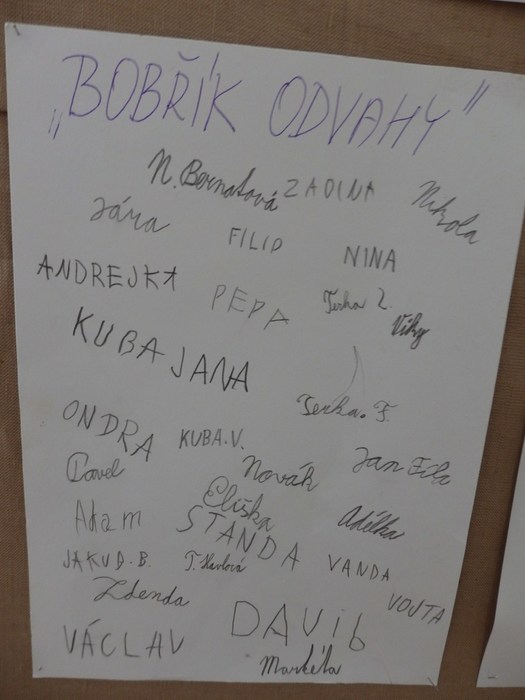 „BOBŘÍK ODVAHY"
N. Bernatová ZADINA Nikola
Jára FILIP NINA
ANDREJKA PEPA Terka Z. Viky
KUBA JANA
Terka. F.
ONDRA KUBA.V.
Pavel Novák Jan Fila
Eliška
Adam STANDA Adélka
JAKUB.B. T. Havlová VANDA
Zdenda VOJTA
DAVID
VÁCLAV
Markéta